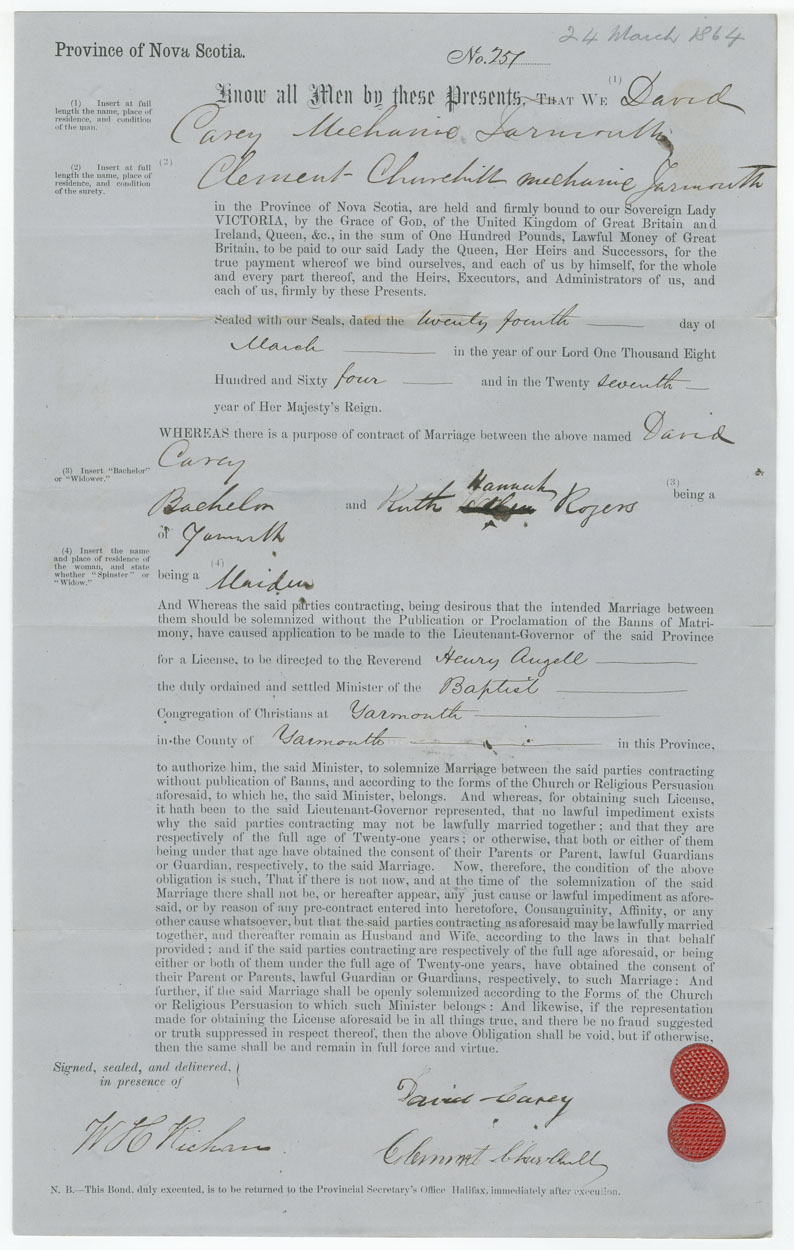 24 March 1864
Province of Nova Scotia.
No. 251
Know all Men by these Presents, THAT WE (1) David
(1) Insert at full
length the name, place of
residence, and condition
of the man.
Carey Mechanic Yarmouth
(2) Insert at full
length the name, place of
residence, and condition
of the surety.
(2) Clement Churchill mechanic Yarmouth
in the Province of Nova Scotia, are held and firmly bound to our Sovereign Lady
VICTORIA, by the Grace of GOD, of the United Kingdom of Great Britain and
Ireland, Queen, &c., in the sum of One Hundred Pounds, Lawful Money of Great
Britain, to be paid to our said Lady the Queen, Her Heirs and Successors, for the
true payment whereof we bind ourselves, and each of us by himself, for the whole
and every part thereof, and the Heirs, Executors, and Administrators of us, and
each of us, firmly by these Presents.
Sealed with our Seals, dated the twenty fourth day of
March in the year of our Lord One Thousand Eight
Hundred and Sixty four and in the Twenty seventh
year of Her Majesty's Reign.
WHEREAS there is a purpose of contract of Marriage between the above named David
Carey
(3) Insert "Bachelor"
or "Widower."
(3) being a
Hannah
Bachelor and Ruth Rogers
of Yarmouth
(4) Insert the name
and place of residence of
the woman, and state
whether "Spinster" or
"Widow."
being a (4) Maiden
And Whereas the said parties contracting, being desirous that the intended Marriage between
them should be solemnized without the Publication or Proclamation of the Banns of Matri-
mony, have caused application to be made to the Lieutenant-Governor of the said Province
for a License, to be directed to the Reverend Henry Angell
the duly ordained and settled Minister of the Baptist
Congregation of Christians at Yarmouth
in the County of Yarmouth in this Province,
to authorize him, the said Minister, to solemnize Marriage between the said parties contracting
without publication of Banns, and according to the forms of the Church or Religious Persuasion
aforesaid, to which he, the said Minister, belongs. And whereas, for obtaining such License,
it hath been to the said Lieutenant-Governor represented, that no lawful impediment exists
why the said parties contracting may not be lawfully married together; and that they are
respectively of the full age of Twenty-one years; or otherwise, that both or either of them
being under that age have obtained the consent of their Parents or Parent, lawful Guardians
or Guardian, respectively, to the said Marriage. Now, therefore, the condition of the above
obligation is such, That if there is not now, and at the time of the solemnization of the said
Marriage there shall not be, or hereafter appear, any just cause or lawful impediment as afore-
said, or by reason of any pre-contract entered into heretofore, Consanguinity, Affinity, or any
other cause whatsoever, but that the said parties contracting as aforesaid may be lawfully married
together, and thereafter remain as Husband and Wife, according to the laws in that behalf
provided; and if the said parties contracting are respectively of the full age aforesaid, or being
either or both of them under the full age of Twenty-one years, have obtained the consent of
their Parent or Parents, lawful Guardian or Guardians, respectively, to such Marriage: And
further, if the said Marriage shall be openly solemnized according to the Forms of the Church
or Religious Persuasion to which such Minister belongs: And likewise, if the representation
made for obtaining the License aforesaid be in all things true, and there be no fraud suggested
or truth suppressed in respect thereof, then the above Obligation shall be void, but if otherwise,
then the same shall be and remain in full force and virtue.
Signed, sealed, and delivered,
in presence of
David Carey
W H Richan
Clement Churchill
N. B.—This Bond, duly executed, is to be returned to the Provincial Secretary's Office Halifax, immediately after execution.